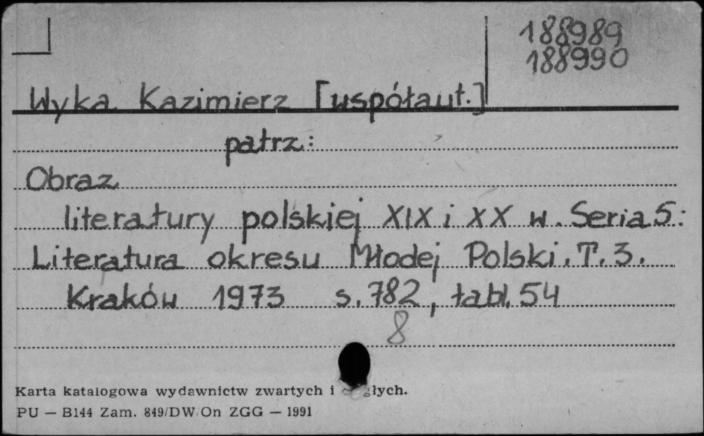 188989
188990
Wyka Kazimierz [współaut.]
patrz:
Obraz
literatury polskiej XIX i XX w. Seria 5:
Literatura okresu Młodej Polski. T. 3.
Kraków 1973 s. 782, tabl. 54
8
Karta katalogowa wydawnictw zwartych i
PU — B144 Zam. 849/DW/On ZGG — 1991